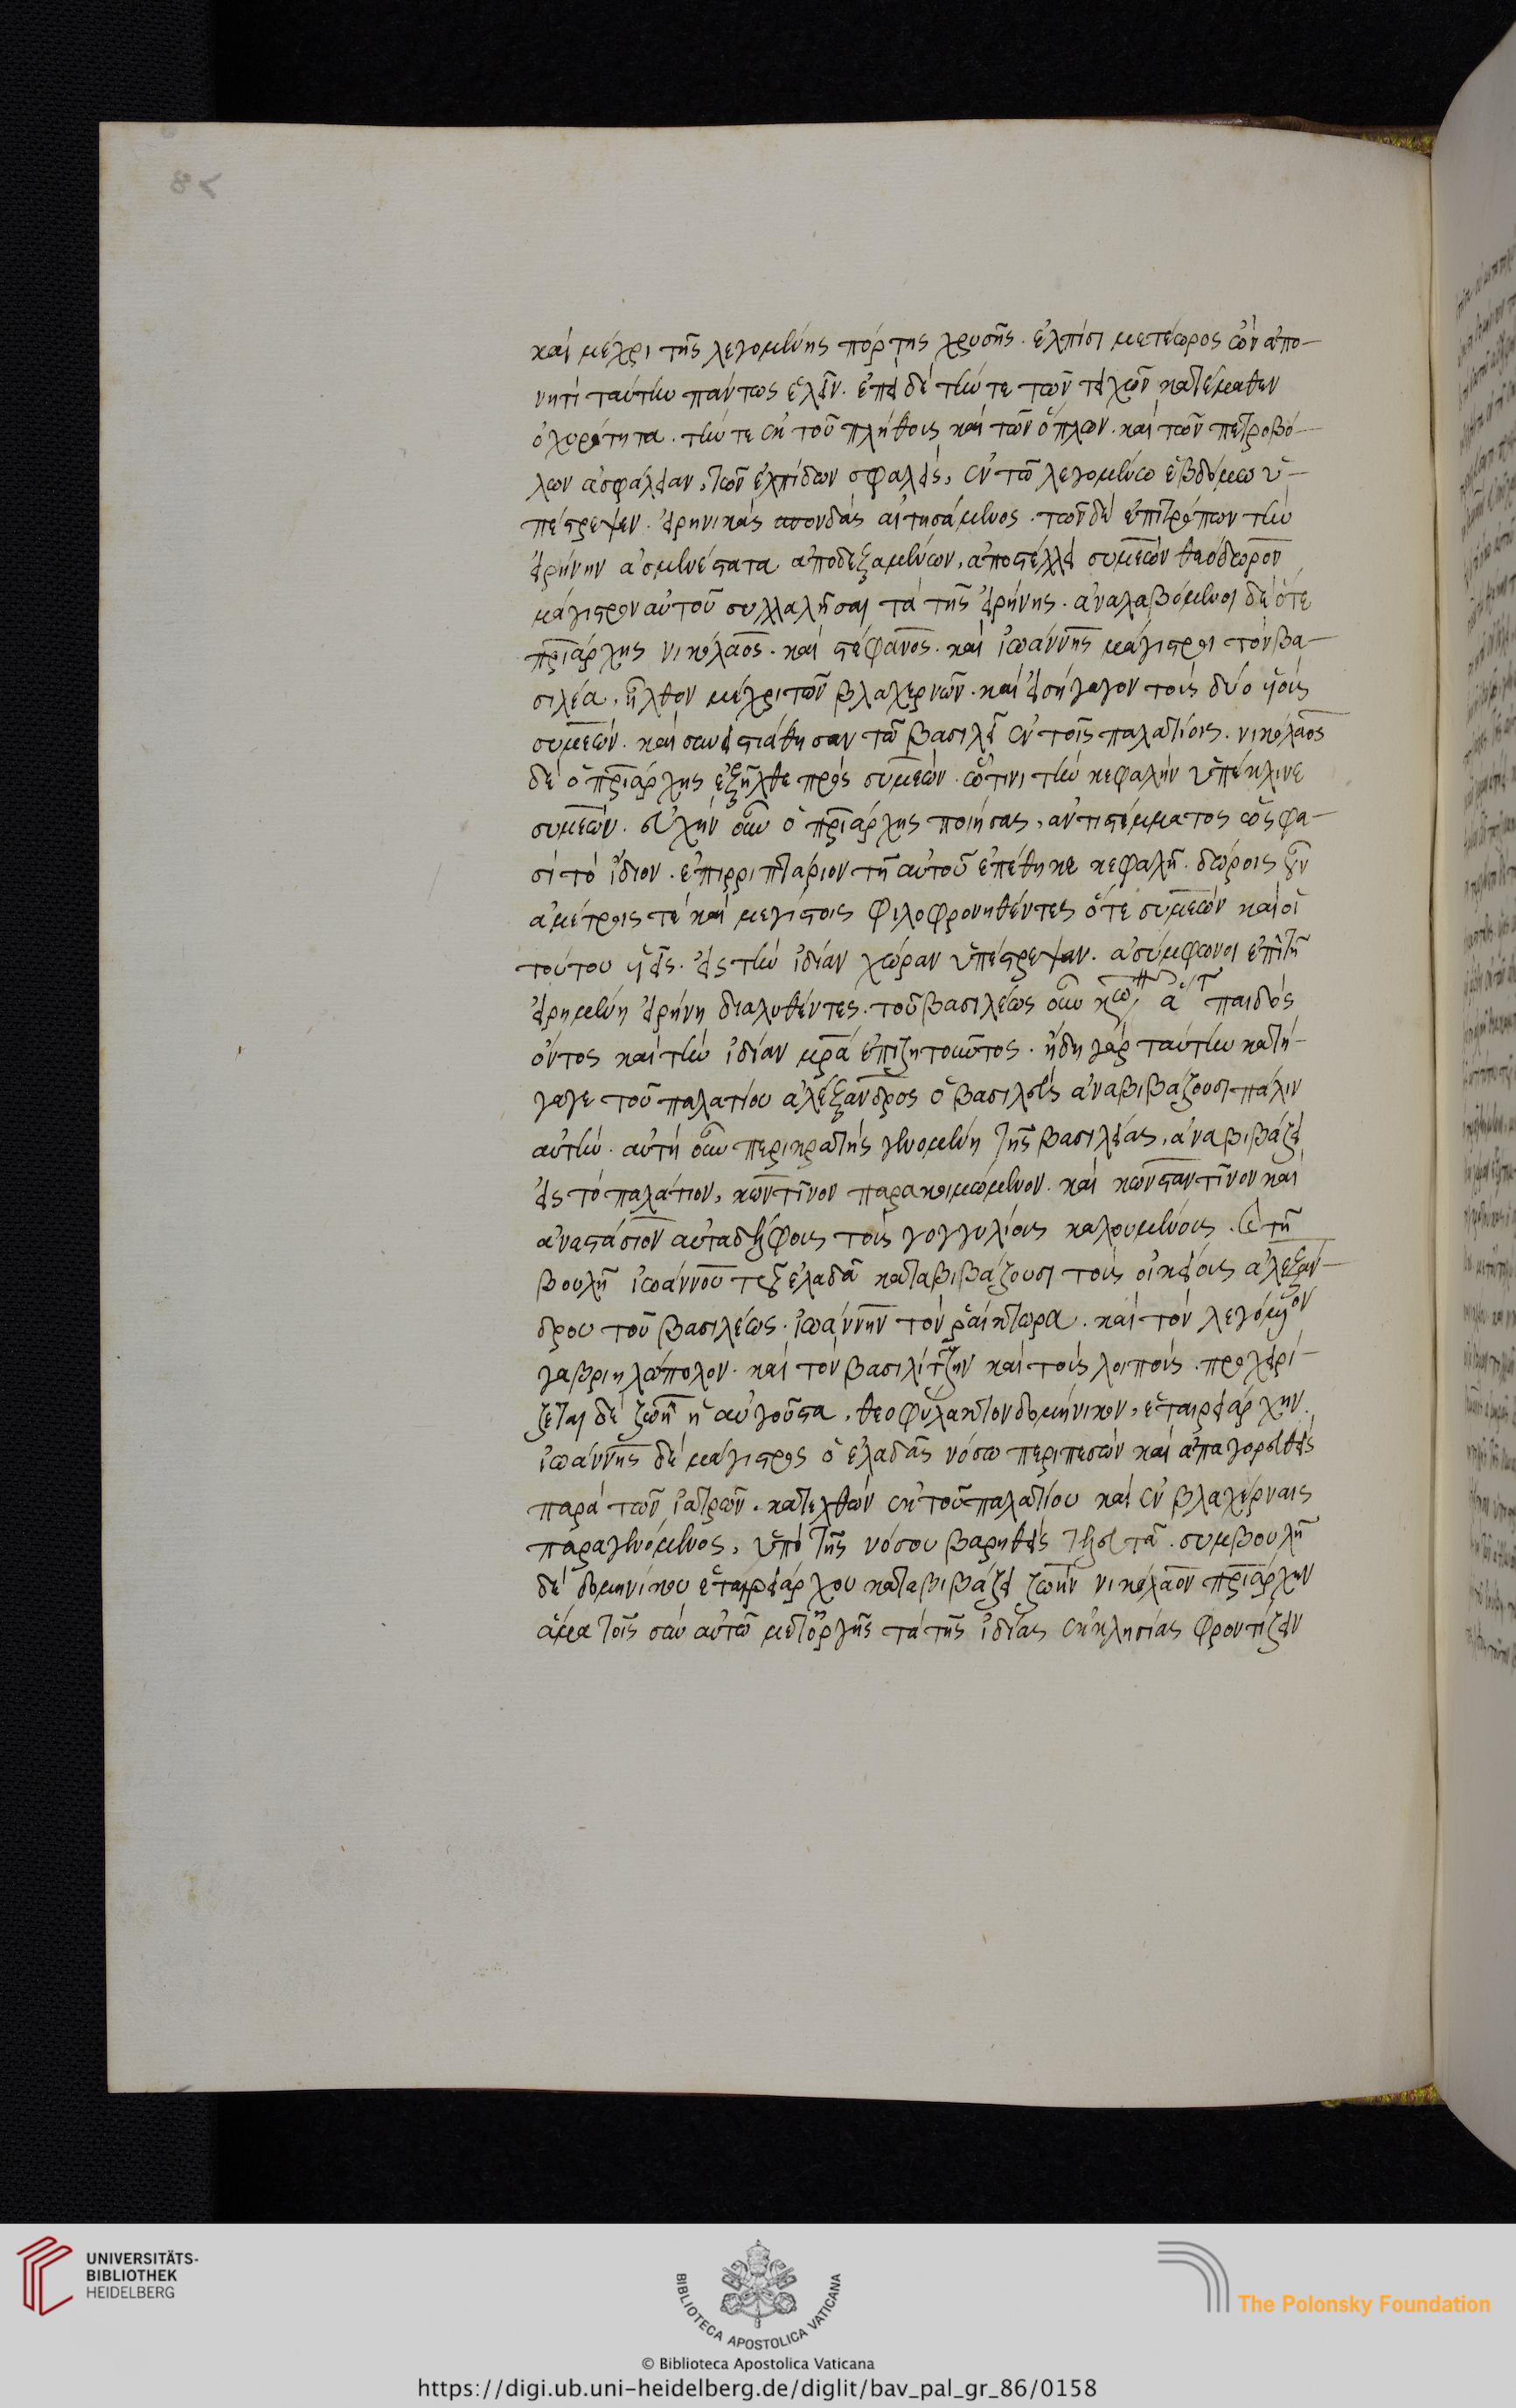 καὶ μέχρι τῆς λεγομένης πόρτης χρυσῆς. ἐλπίσι μετέωρος ὢν ἀπο-
νητὶ ταύτην πάντως ἑλεῖν. ἐπεὶ δὲ τήν τε τῶν τειχῶν κατέμαθεν
ὀχυρότητα. τήν τε ἐκ τοῦ πλήθους καὶ τῶν ὅπλων. καὶ τῶν πετροβό-
λων ἀσφάλειαν, τῶν ἐλπίδων σφαλεὶς, ἐν τῷ λεγομένω ἑβδόμω ὑ-
πέστρεψεν. εἰρηνικὰς σπονδὰς αἰτησάμενος. τῶν δὲ ἐπιτρόπων τὴν
εἰρήνην ἀσμενέστατα ἀποδεξαμένων, ἀποστέλλει συμεὼν θεόδωρον
μάγιστρον αὐτοῦ συλλαλῆσαι τὰ τῆς εἰρήνης. ἀναλαβόμενοι δὲ ὅτε
πριάρχης νικόλαος. καὶ στέφανος. καὶ ἰωάννης μάγιστροι τὸν βα-
σιλέα, ἦλθον μέχρι τῶν βλαχερνῶν. καὶ εἰσήγαγον τοὺς δύο υἱοὺς
συμεών. καὶ συνειστιάθησαν τῷ βασιλεῖ ἐν τοῖς παλατίοις. νικόλαος
δὲ ὁ πριάρχης ἐξῆλθε πρὸς συμεών. ὧτινι τὴν κεφαλὴν ὑπέκλινε
συμεών. εὐχὴν οὖν ὁ πριάρχης ποιήσας, ἀντιστέμματος ὥς φα-
σὶ τὸ ἴδιον. ἐπιρριπτάριον τῇ αὐτοῦ ἐπέθηκε κεφαλῇ. δώροις οὖν
ἀμέτροις τὲ καὶ μεγίστοις φιλοφρονηθέντες ὅτε συμεὼν καὶ οἱ
τούτου υἱεῖς. εἰς τὴν ἰδίαν χώραν ὑπέστρεψαν. ἀσύμφωνοι ἐπὶ τῇ
εἰρημένη εἰρήνη διαλυθέντες. τοῦ βασιλέως οὖν παιδὸς
ὄντος καὶ τὴν ἰδίαν μρα ἐπιζητοῦντος. ἤδη γὰρ ταύτην κατή-
γαγε τοῦ παλατίου ἀλέξανδρος ὁ βασιλεὺς ἀναβιβάζουσι πάλιν
αὐτήν. αὐτὴ οὖν περικρατὴς γενομένη τῆς βασιλείας, ἀναβιβάζει
εἰς τὸ παλάτιον, κωντῖνον παρακοιμώμενον. καὶ κωνσταντῖνον καὶ
ἀναστάσιον αὐταδέλφους τοὺς γογγυλίους καλουμένους. καὶ τῇ
βουλῇ ἰωάννου τοῦ ἐλαδᾶ καταβιβάζουσι τοὺς οἰκείους ἀλεξάν-
δρου τοῦ βασιλέως. ἰωάννην τὸν ῥαίκτωρα. καὶ τὸν λεγόμενον
γαβριηλώπολον. καὶ τὸν βασιλίτζην καὶ τοὺς λοιπούς. προχειρί-
ζεται δὲ ζωὴ ἡ αὐγοῦστα, θεοφύλακτον δομήνικον, ἑταιρειάρχην.
ἰωάννης δὲ μάγιστρος ὁ ἐλαδᾶς νόσω περιπεσὼν καὶ ἀπαγορευθεὶς
παρὰ τῶν ἰατρῶν. κατελθὼν ἐκ τοῦ παλατίου καὶ ἐν βλαχέρναις
παραγενόμενος, ὑπὸ τῆς νόσου βαρηθεὶς τελευτᾷ. συμβουλῇ
δὲ δομηνίκου ἑταιρειάρχου καταβιβάζει ζωὴν νικόλαον πριάρχην
ἅμα τοῖς σὺν αὐτῷ μετ᾽ ὀργῆς τὰ τῆς ἰδίας ἐκκλησίας φροντίζειν
UNIVERSITÄTS-
BIBLIOTHEK
HEIDELBERG
BIBLIOTECA APOSTOLICA VATICANA
The Polonsky Foundation
© Biblioteca Apostolica Vaticana
https://digi.ub.uni-heidelberg.de/diglit/bav_pal_gr_86/0158